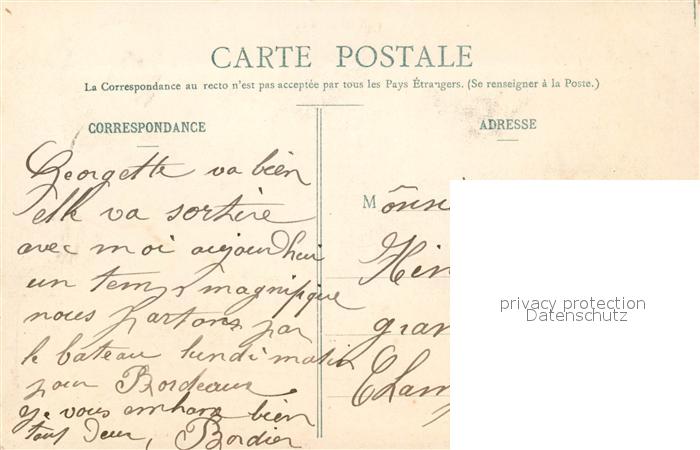 CARTE POSTALE
La Correspondance au recto n'est pas acceptée par tous les Pays Étrangers. (Se renseigner à la Poste.)
CORRESPONDANCE
Georgette va bien
elle va sortire
avec moi aujourdhui
un temps magnifique
nous partons par
le bateau lundi matin
pour Bordeaux
je vous embrasse bien
tout deux, Bordier
ADRESSE
Mônsi
Hen
gran
Cham
privacy protection
Datenschutz